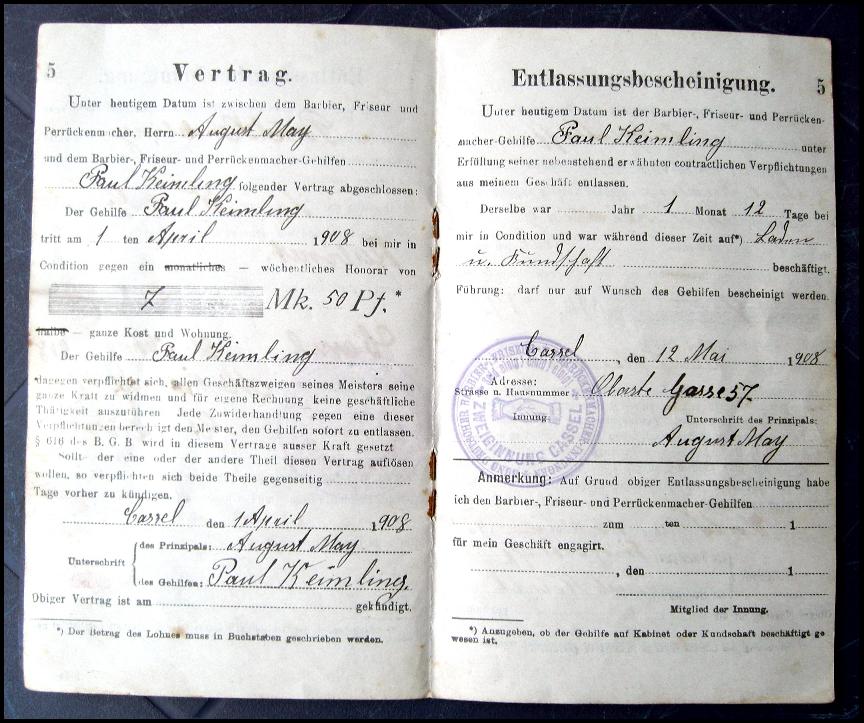 5
Vertrag.
Unter heutigem Datum ist zwischen dem Barbier, Friseur und
Perrückenmacher, Herrn August May
und dem Barbier-, Friseur- und Perrückenmacher-Gehilfen
Paul Keimling folgender Vertrag abgeschlossen:
Der Gehilfe Paul Keimling
tritt am 1 ten April 1908 bei mir in
Condition gegen ein monatliches — wöchentliches Honorar von
7 Mk. 50 Pf.*
halbe — ganze Kost und Wohnung.
Der Gehilfe Paul Keimling
dagegen verpflichtet sich, allen Geschäftszweigen seines Meisters seine
ganze Kraft zu widmen und für eigene Rechnung keine geschäftliche
Thärigkeit auszuführen Jede Zuwiderhandlung gegen eine dieser
Verpflichtungen berechtigt den Meister, den Gehilfen sofort zu entlassen.
§ 616 des B. G. B wird in diesem Vertrage ausser Kraft gesetzt
Sollte der eine oder der andere Theil diesen Vertrag auflösen
wollen, so verpflichten sich beide Theile gegenseitig
Tage vorher zu kündigen.
Cassel den 1 April 1908
Unterschrift
des Prinzipals: August May
des Gehilfen: Paul Keimling.
Obiger Vertrag ist am gekündigt.
*) Der Betrag des Lohnes muss in Buchstaben geschrieben werden.
Entlassungsbescheinigung. 5
Unter heutigem Datum ist der Barbier-, Friseur- und Perrücken-
macher-Gehilfe Paul Keimling unter
Erfüllung seiner nebenstehend erwähnten contractlichen Verpflichtungen
aus meinem Geschäft entlassen.
Derselbe war Jahr 1 Monat 12 Tage bei
mir in Condition und war während dieser Zeit auf*) Laden
u. Kundschaft beschäftigt.
Führung: darf nur auf Wunsch des Gehilfen bescheinigt werden.
Cassel, den 12 Mai 1908
Adresse:
Strasse u. Hausnummer Oberste Gasse 57
Innung. Unterschrift des Prinzipals:
August May
ZWEIGINNUNG CASSEL
Anmerkung: Auf Grund obiger Entlassungsbescheinigung habe
ich den Barbier-, Friseur- und Perrückenmacher-Gehilfen
zum ten 1
für mein Geschäft engagirt.
, den 1
Mitglied der Innung.
*) Anzugeben, ob der Gehilfe auf Kabinet oder Kundschaft beschäftigt ge
wesen ist.